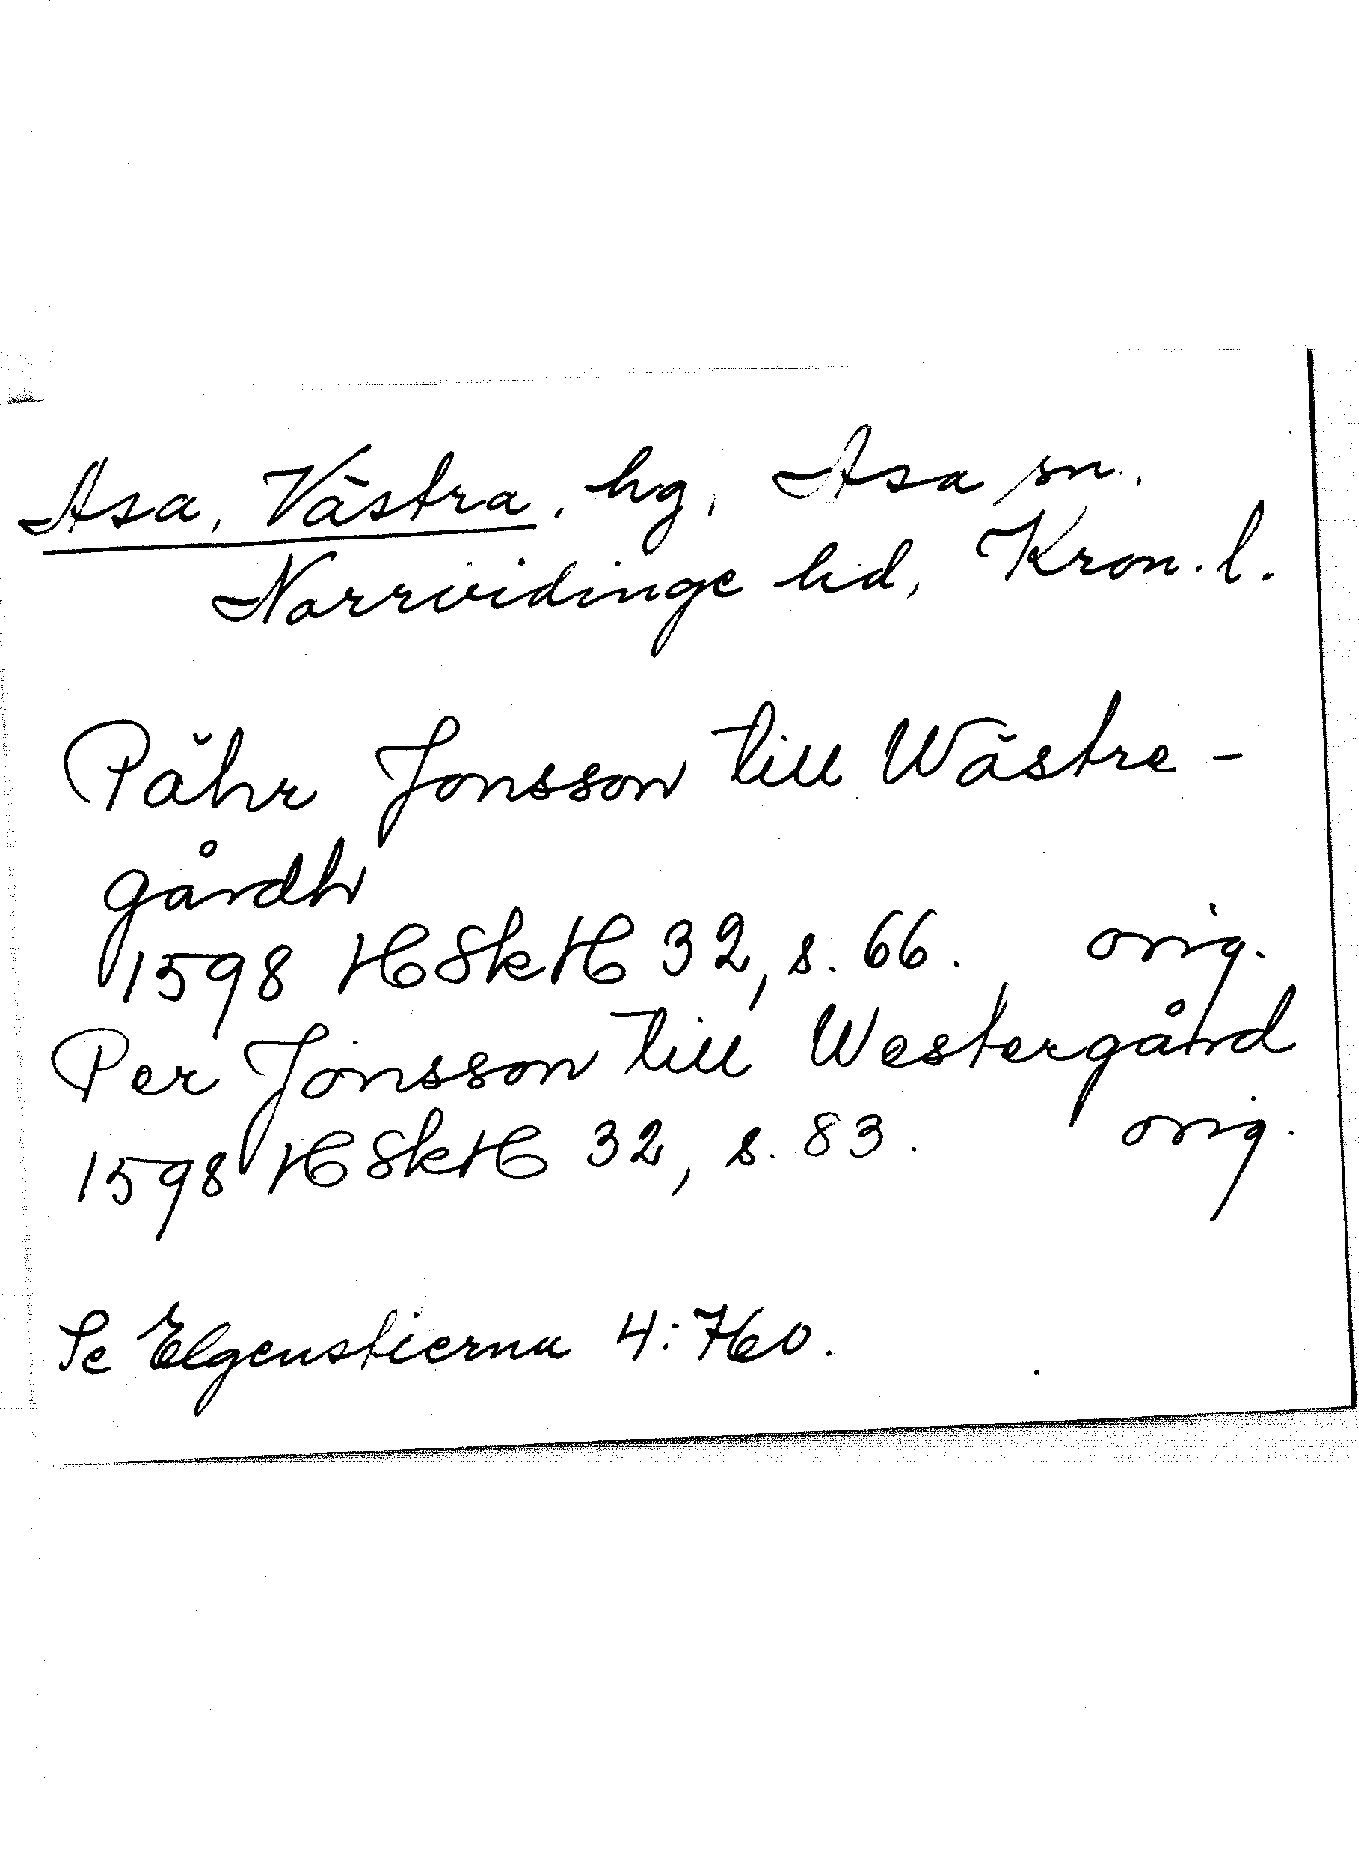 Asa, Västra, hg, Asa sn.
Norrvidinge hd, Kron. l.
Pähr Jonsson till Wästre-
gårdh
1598 HSkH 32, s. 66. orig.
Per Jönsson till Westergård
1598 HSkH 32, s. 83. orig.
Se Elgenstierna 4:760.